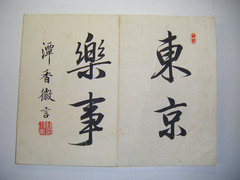 東京
樂事
潭香徽言